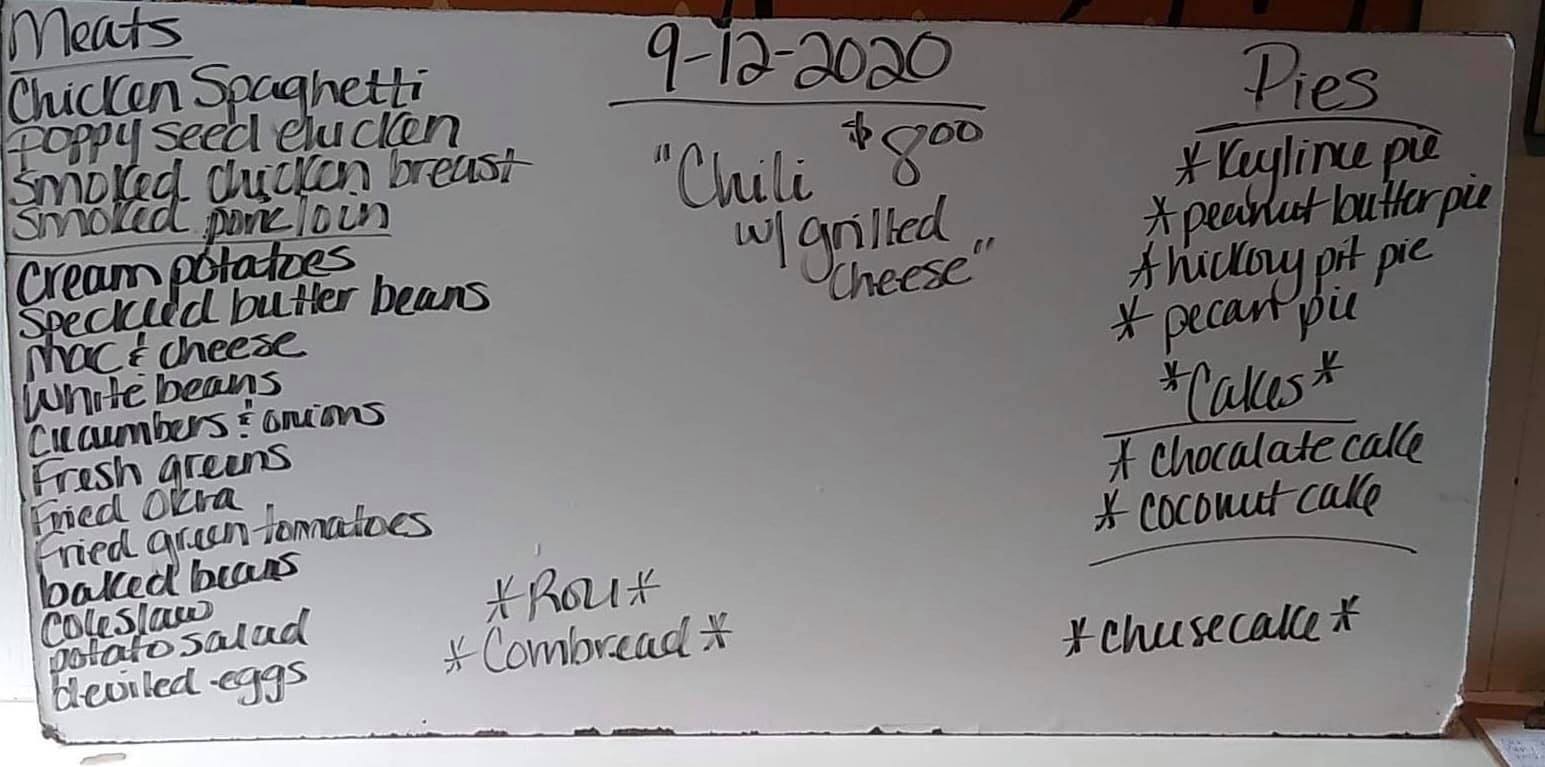 Meats
Chicken Spaghetti
poppy seed chicken
Smoked chicken breast
Smoked pork loin
Cream potatoes
Speckled butter beans
Mac & cheese
White beans
Cucumbers & onions
Fresh greens
Fried Okra
Fried green tomatoes
baked beans
Coleslaw
potato salad
deviled eggs
9-12-2020
"Chili $8.00
w/ grilled
cheese"
*Roll*
*Cornbread*
Pies
* Keylime pie
* peanut butter pie
* hickory pit pie
* pecan pie
*Cakes*
* Chocalate cake
* coconut cake
*Cheesecake*